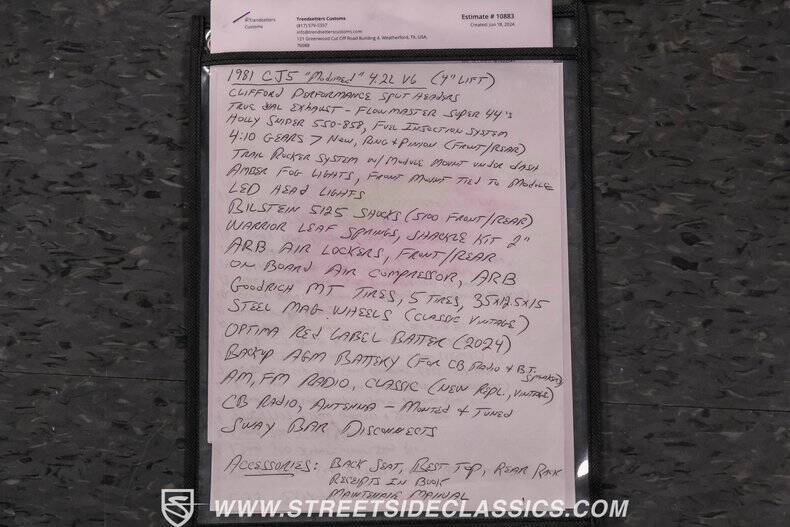 Trendsetters
Customs
Trendsetters Customs
(817) 579-5557
info@trendsetterscustoms.com
131 Greenwood Cut Off Road Building 4, Weatherford, TX, USA,
76088
Estimate # 10883
Created: Jun 18, 2024
1981 CJ5 "Modified" 4.2L V6 (4" LIFT)
CLIFFORD PERFORMANCE SPLIT HEADERS
TRUE DUAL EXHAUST - FLOWMASTER SUPER 44's
HOLLY SNIPER 550-858, FUEL INJECTION SYSTEM
4:10 GEARS > NEW, RING & PINION (FRONT/REAR)
TRAIL ROCKER SYSTEM W/ MODULE MOUNT UNDER DASH
AMBER FOG LIGHTS, FRONT MOUNT TIED TO MODULE
LED HEAD LIGHTS
BILSTEIN 5125 SHOCKS (5100 FRONT/REAR)
WARRIOR LEAF SPRINGS, SHACKLE KIT 2"
ARB AIR LOCKERS, FRONT/REAR
ON BOARD AIR COMPRESSOR, ARB
GOODRICH MT TIRES, 5 TIRES, 35x12.5x15
STEEL MAG WHEELS (CLASSIC VINTAGE)
OPTIMA RED LABEL BATTER (2024)
BACKUP AGM BATTERY (FOR CB RADIO & B.T. SPEAKER)
AM, FM RADIO, CLASSIC (NEW REPL, VINTAGE)
CB RADIO, ANTENNA - MONTED & TUNED
SWAY BAR DISCONNECTS
ACCESSORIES: BACK SEAT, BEST TOP, REAR RACK
RECEIPTS IN BOOK
MAINTENANCE MANUAL
WWW.STREETSIDECLASSICS.COM